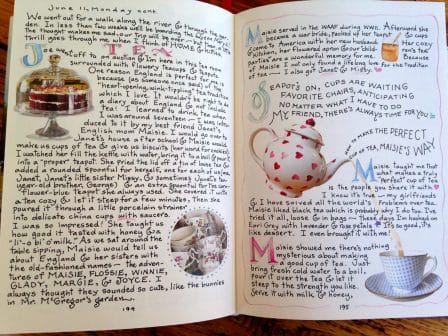 June 11, Monday noon
We went for a walk along the river & through the gar-
den. In less than two weeks we'll be boarding the Queen. Just
the thought makes me sad, our trip will be over, but then a
thrill goes through me when I think of HOME & Jack.
TEA
Joe went off to an auction & I'm here in this tea room
surrounded with flowery teacups & teapots.
One reason England is perfect for me
is because (as someone once said) of the
"heart-opening, wink-tipping" tea tradition,
which I love. It wouldn't be right to do
a diary about England & not include
Tea! I learned to drink tea when
I was around seventeen — I was intro-
duced to it by my best friend Janet's
English mom Maisie. I would go over to
Janet's house after school & Maisie would
make us cups of tea & give us biscuits (her word for cookies).
I watched her fill the kettle with water, bring it to a boil & pour it
into a "proper" teapot. She pried the lid off a tin of loose tea &
added a rounded spoonful for herself, one for each of us (me,
Janet, Janet's little sister Migsy, & sometimes Janet's ten-
year-old brother, George) & an extra spoonful for the small
flower-blue teapot she always used. She covered it with
a tea cozy & let it steep for a few minutes, then she
poured it through a little porcelain strainer
into delicate china cups with saucers.
I was so impressed! She taught us
how good it tasted with honey &
"li'l o bi o' milk." As we sat around the
table sipping, Maisie would tell us
about England & her sisters with
the old-fashioned names — the adven-
tures of MAISIE, FLOSSIE, WINNIE,
GLADY, MARGIE, & JOYCE. I
always thought they sounded so cute, like the bunnies
in Mr. McGregor's garden.
194
Maisie served in the WAAF during WWII. Afterward she
became a war bride, famed of her teapot &
came to America with her new husband. Her cozy
Kitchen, her flowered apron & our "child-
parties" are a wonderful memory for me. Because
of Maisie I not only found a lifelong love for the tradition
of tea — I also got Janet & Migsy.
Teapot's on, cups are waiting
Favorite chairs, anticipating
No matter what I have to do
My friend, there's always time for you
HOW TO MAKE THE PERFECT
CUP of TEA, MAISIE'S WAY
Maisie taught me that
what makes a truly
"perfect" cup of tea
is the people you share it with.
I know it's true — my girlfriends
& I have solved all the world's problems over tea.
Maisie liked black tea which is probably why I do too. I've
tried it all, loose & in bags — these days I'm hung up on
Earl Grey with lavender & rose petals. It's so good, it's
like dessert. I even brought it with me!
Maisie showed me there's nothing
mysterious about making
a good cup of tea. Just
bring fresh cold water to a boil,
pour it over the tea & let it
steep to the strength you like.
Serve it with milk, & honey,
195